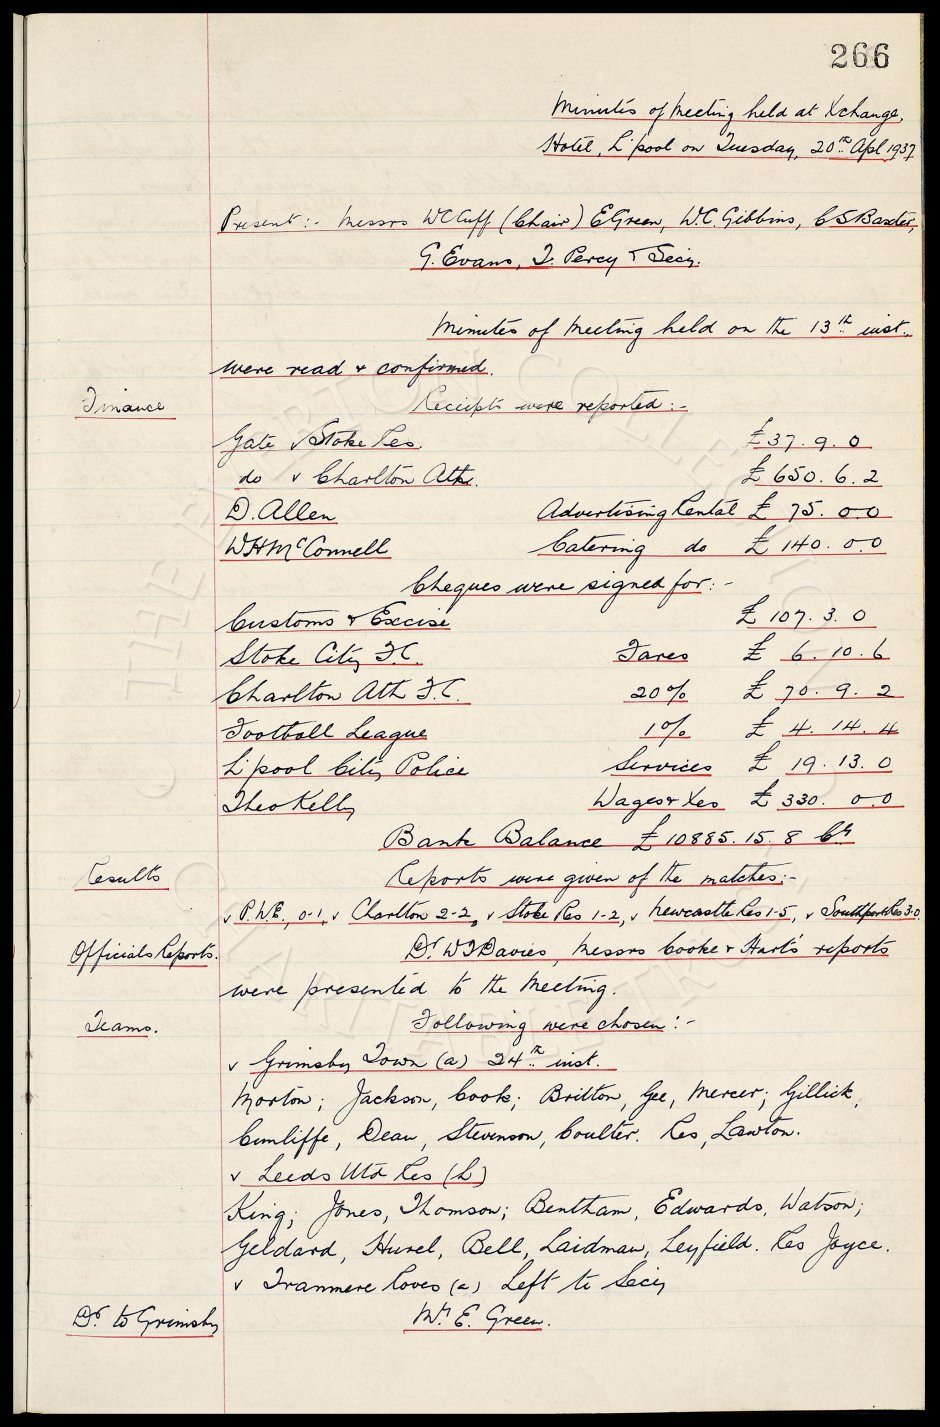 266
Minutes of Meeting held at Xchange,
Hotel, L'pool on Tuesday, 20th Apl 1937
Present:- Messrs W C Cuff (Chair) E Green, W.C. Gibbins, C S Baxter,
G. Evans, T. Percy & Secy.
Minutes of Meeting held on the 13th inst.,
were read & confirmed.
Finance
Receipts were reported:-
Gate v Stoke Res. £37. 9. 0
do v Charlton Ath. £650. 6. 2
D. Allen Advertising Rental £ 75. 0.0
W H McConnell Catering do £ 140. 0.0
Cheques were signed for:-
Customs & Excise £ 107. 3. 0
Stoke City F.C. Fares £ 6. 10. 6
Charlton Ath F.C. 20% £ 70. 9. 2
Football League 1% £ 4. 14. 4
L'pool City Police Services £ 19. 13. 0
Theo Kelly Wages & Xes £ 330. 0.0
Bank Balance £10885. 15. 8 Cr
Results
Reports were given of the matches:-
v P.N.E. 0-1, v Charlton 2-2, v Stoke Res 1-2, v Newcastle Res 1-5, v Southport Res 3-0.
Officials Reports.
Dr W J Davies, Messrs Cooke & Hart's reports
were presented to the Meeting.
Teams.
Following were chosen:-
v Grimsby Town (a) 24th inst.
Morton; Jackson, Cook; Britton, Gee, Mercer; Gillick,
Cunliffe, Dean, Stevenson, Coulter. Res, Lawton.
v Leeds Utd Res (L)
King; Jones, Thomson; Bentham, Edwards, Watson;
Geldard, Hurel, Bell, Laidman, Leyfield. Res Joyce.
v Tranmere Rovers (a) Left to Secy
Dr. to Grimsby
Mr. E. Green.
THE EVERTON COLLECTION
CHARITABLE TRUST